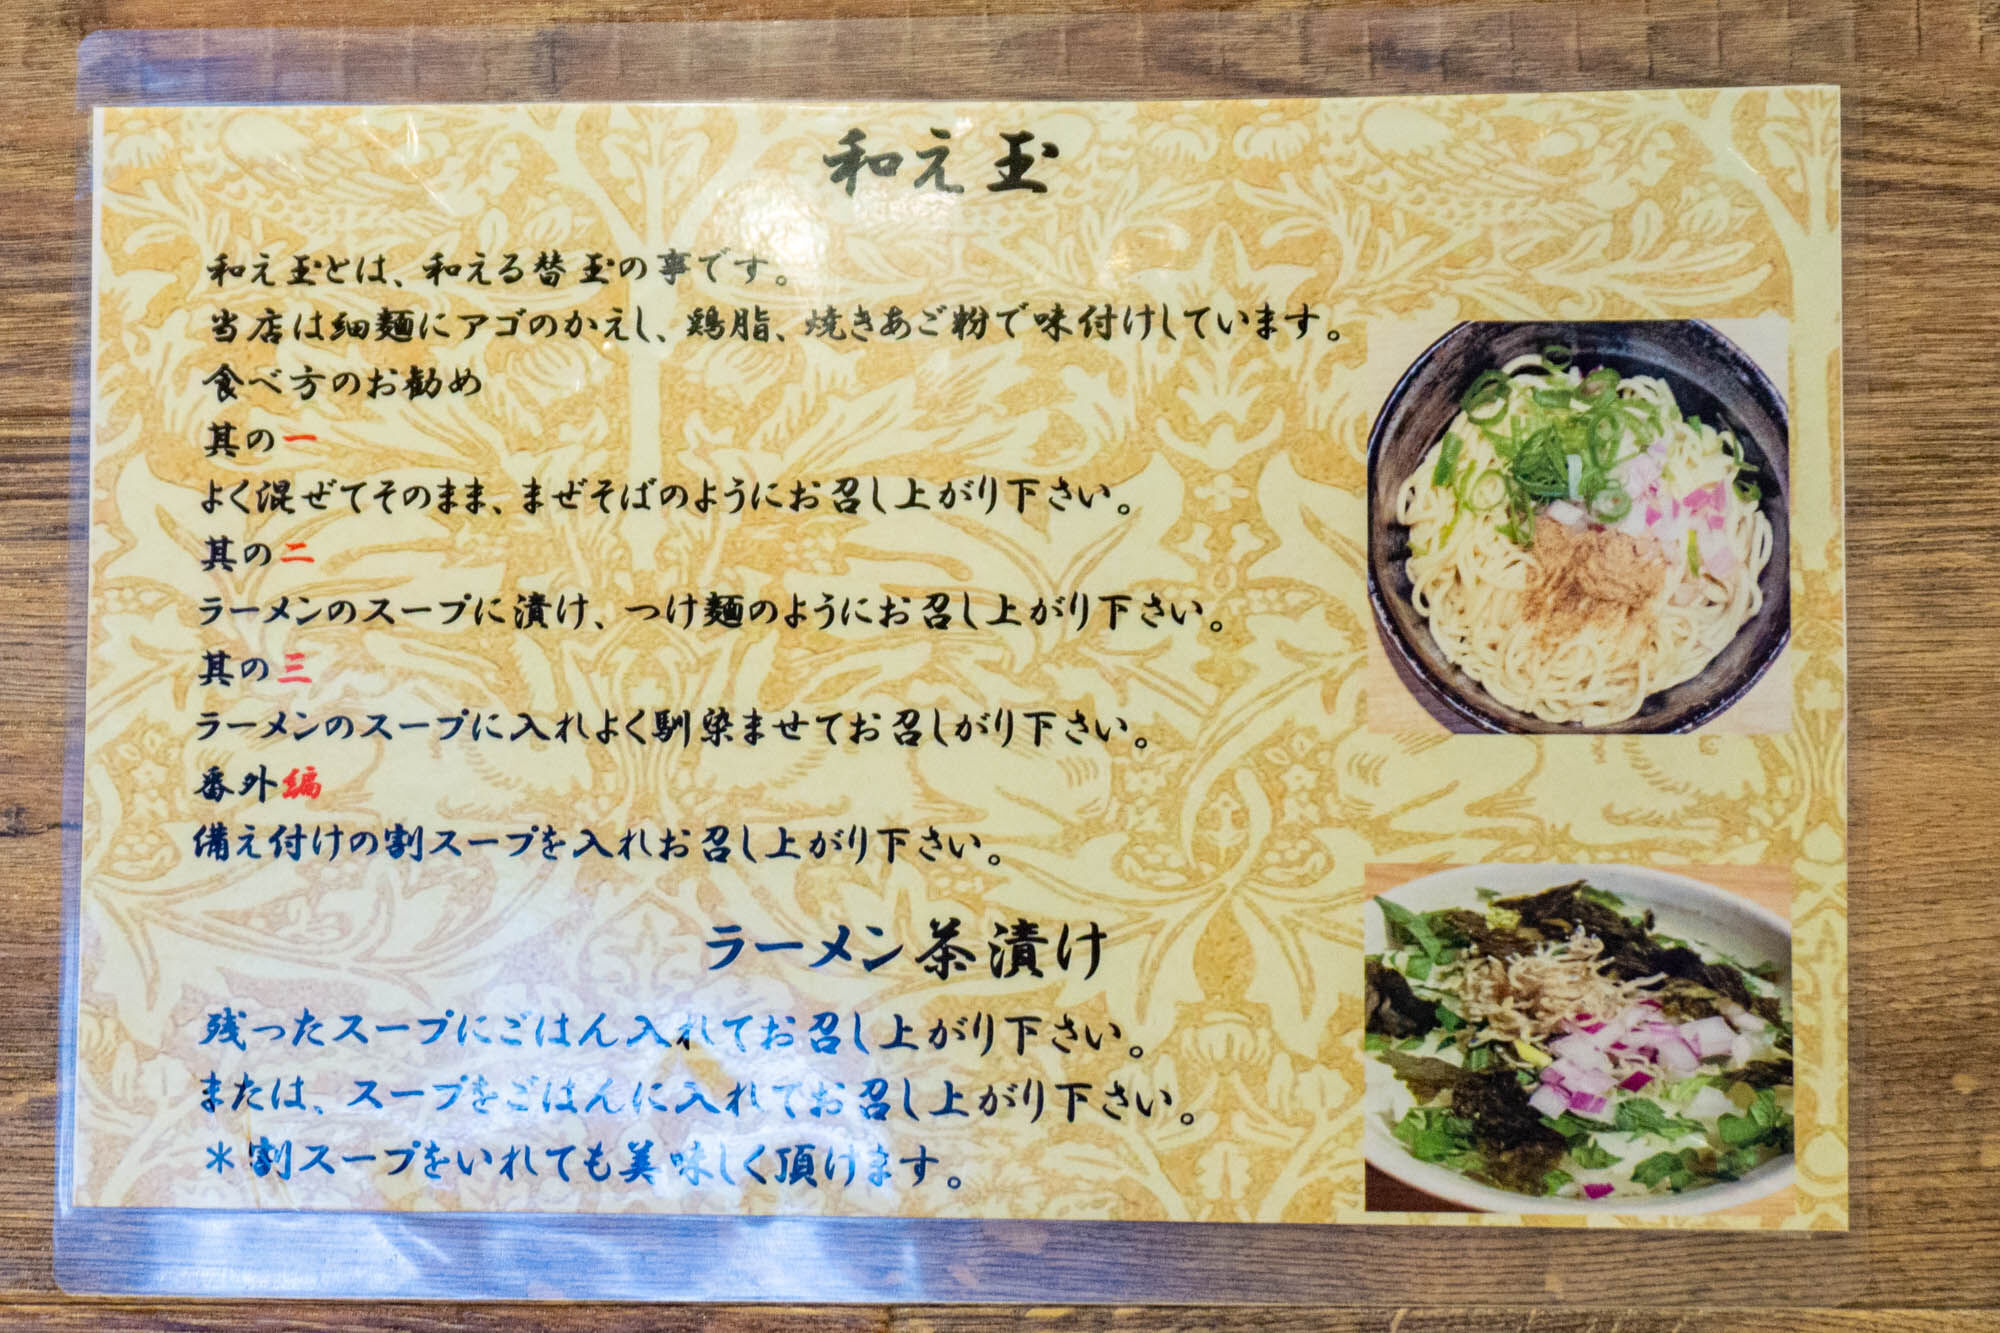 和え玉
和え玉とは、和える替玉の事です。
当店は細麺にアゴのかえし、鶏脂、焼きあご粉で味付けしています。
食べ方のお勧め
其の一
よく混ぜてそのまま、まぜそばのようにお召し上がり下さい。
其の二
ラーメンのスープに漬け、つけ麺のようにお召し上がり下さい。
其の三
ラーメンのスープに入れよく馴染ませてお召しがり下さい。
番外編
備え付けの割スープを入れお召し上がり下さい。
ラーメン茶漬け
残ったスープにごはん入れてお召し上がり下さい。
または、スープをごはんに入れてお召し上がり下さい。
＊割スープをいれても美味しく頂けます。